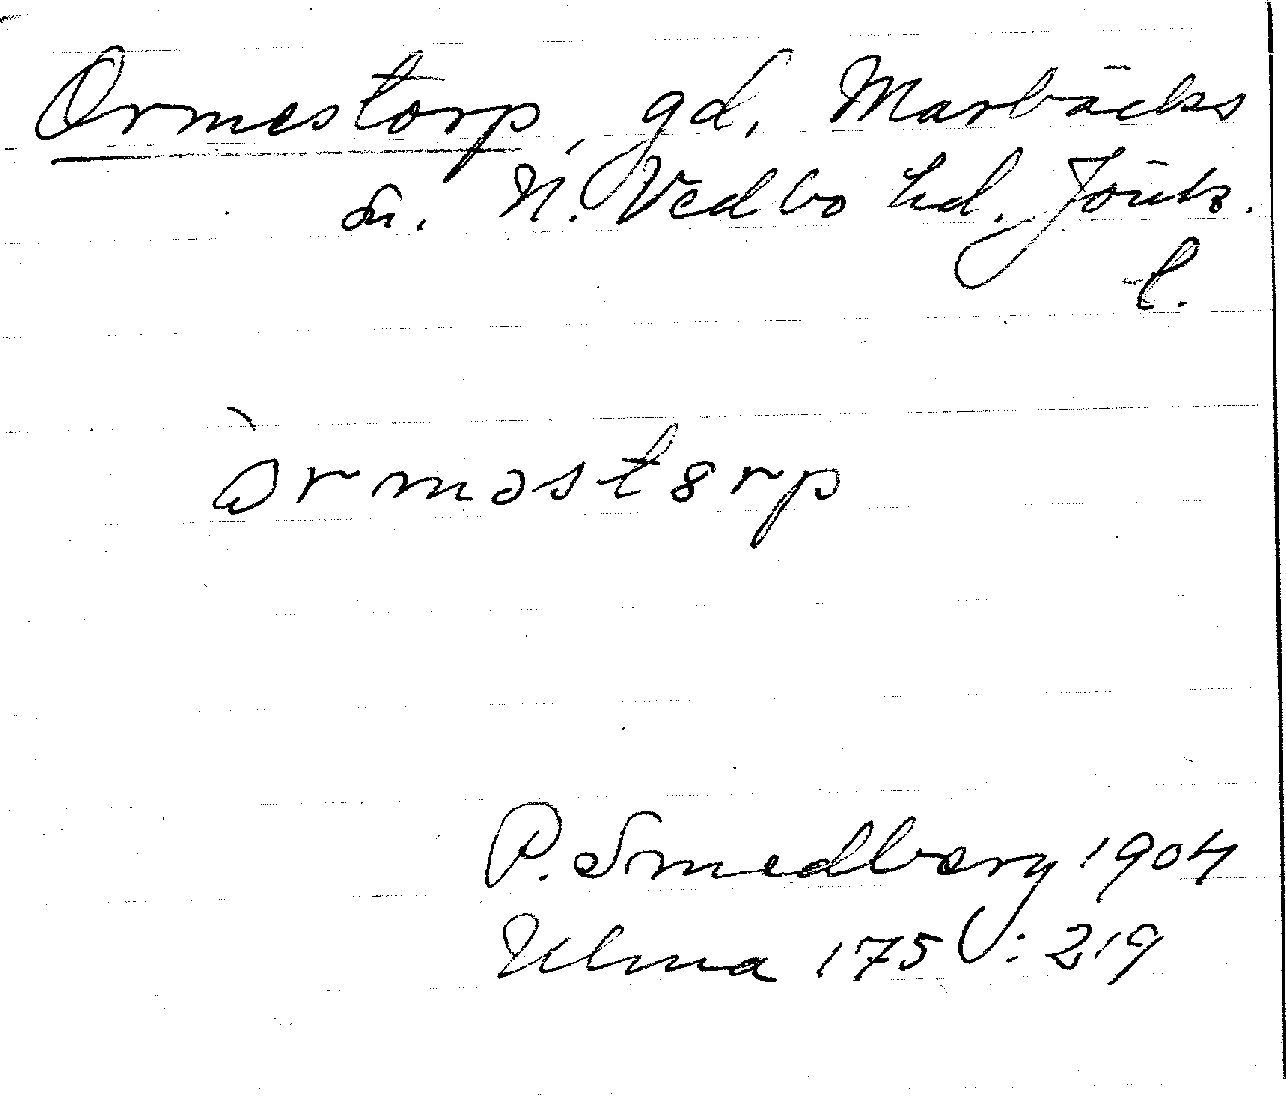 Ormestorp, gd, Marbäcks
sn. N. Vedbo hd. Jönk.
l.
òrməstɜrp
P. Smedberg 1904
Ulma 175 : 219